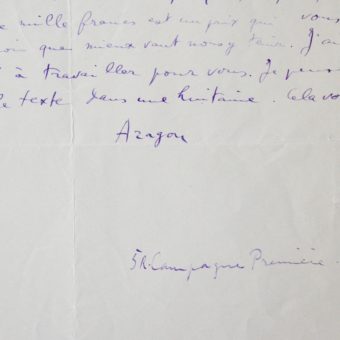 mille francs est un prix qui vous
que mieux vaut nous y tenir. J'ai
à travailler pour vous. Je pense
le texte dans une huitaine. Cela vo
Aragon
5 R. Campagne Première.